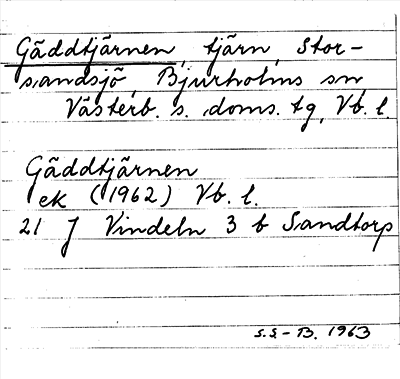 Gäddtjärnen, tjärn, Stor-
sandsjö, Bjurholms sn,
Västerb. s. doms. tg, Vb. l.
Gäddtjärnen
ek (1962) Vb. l.
21 J Vindeln 3 b Sandtorp
S.S-B. 1963